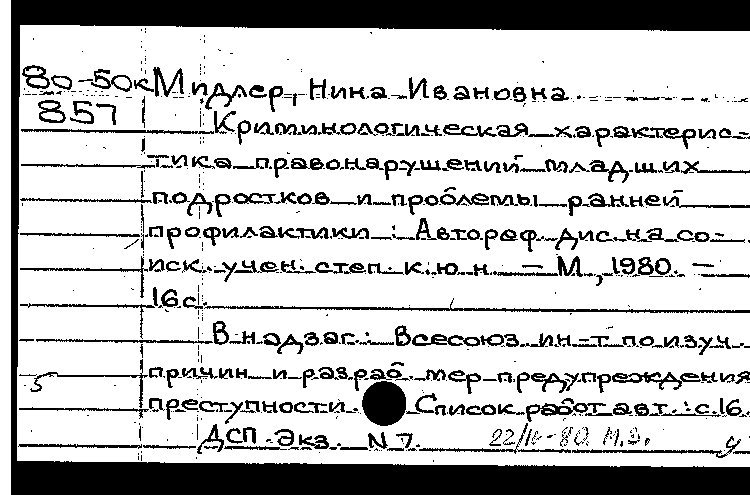 80-50к Мидлер, Нина Ивановна.
857 Криминологическая характерис-
тика правонарушений младших
подростков и проблемы ранней
профилактики : Автореф. дис. на со-
иск. учен. степ. к.ю.н. – М., 1980. –
16 с.
В надзаг.: Всесоюз. ин-т по изуч.
причин и разраб. мер предупреждения
5 преступности. Список работ авт.: с.16.
ДСП. Экз. N 7. 22/IV-80 М.Э. у